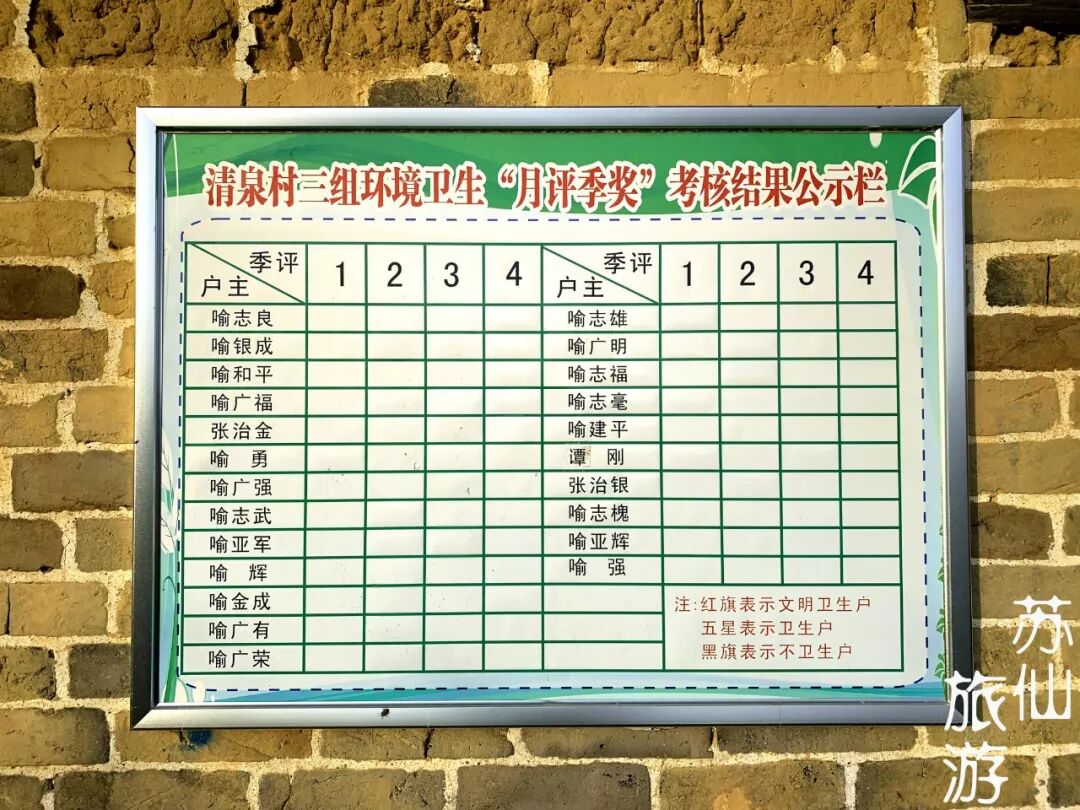 清泉村三组环境卫生“月评季奖”考核结果公示栏
季评 户主 1 2 3 4 季评 户主 1 2 3 4
喻志良 喻志雄
喻银成 喻广明
喻和平 喻志福
喻广福 喻志毫
张治金 喻建平
喻 勇 谭 刚
喻广强 张治银
喻志武 喻志槐
喻亚军 喻亚辉
喻 辉 喻 强
喻金成
喻广有
喻广荣
注:红旗表示文明卫生户
五星表示卫生户
黑旗表示不卫生户
苏仙
旅游